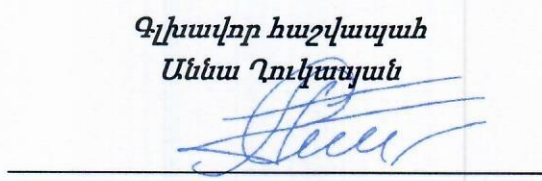 Գլխավոր հաշվապահ
Աննա Ղուկասյան